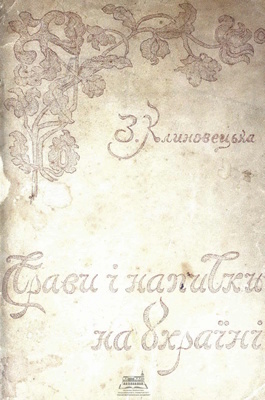 З. Клиновецька
Страви і напитки
на Україні